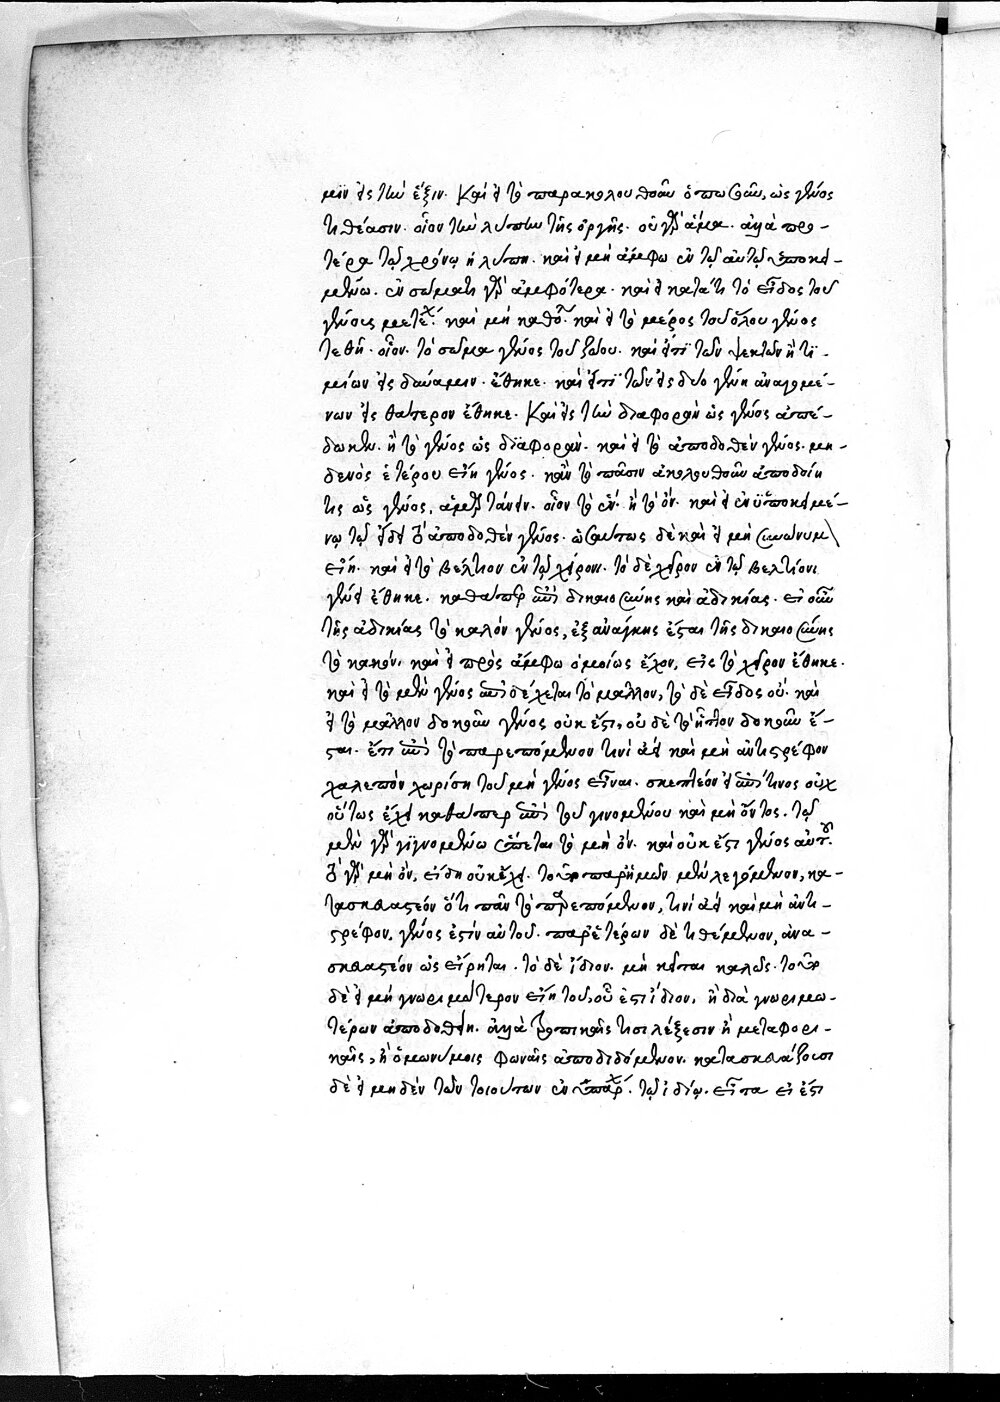 μιν εἰς τὴν ἕξιν. Καὶ εἰ τὸ παρακολουθοῦν ὁπωσοῦν, ὡς γένος
τιθέασιν. οἷον τὴν λύπην τῆς ὀργῆς. οὐ γὰρ ἅμα. ἀλλὰ προ-
τέρα τῷ χρόνῳ ἡ λύπη. καὶ εἰ μὴ ἄμφω ἐν τῷ αὐτῷ ὑποκει-
μένῳ. ἐν σώματι γὰρ ἀμφότερα. καὶ εἰ κατά τι τὸ εἶδος τοῦ
γένους μετέχ. καὶ μὴ καθό. καὶ εἰ τὸ μέρος τοῦ ὅλου γένος
τεθῇ. οἷον. τὸ σῶμα γένος τοῦ ζώου. καὶ εἴ τι τῶν ψεκτῶν ἢ τι-
μίων εἰς δύναμιν. ἔθηκε. καὶ εἴ τι τῶν εἰς δύο γένη ἀναγομέ-
νων εἰς θάτερον ἔθηκε. Καὶ εἰς τὴν διαφορὰν ὡς γένος ἀπέ-
δωκεν. ἢ τὸ γένος ὡς διαφοράν. καὶ εἰ τὸ ἀποδοθὲν γένος. μη-
δενὸς ἑτέρου εἴη γένος. κἂν τὸ πᾶσιν ἀκολουθοῦν ἀποδοίη
τις ὡς γένος, ἁμαρτάνει. οἷον τὸ ἕν. ἢ τὸ ὄν. καὶ εἰ ἐν ὑποκειμέ-
νῳ τῷ εἴδει τὸ ἀποδοθὲν γένος. ὡσαύτως δὲ καὶ εἰ μὴ συνώνυμ
εἴη. καὶ εἰ τὸ βέλτιον ἐν τῷ χείρονι. τὸ δὲ χεῖρον ἐν τῷ βελτίονι
γένει ἔθηκε. καθάπερ ἐπὶ δικαιοσύνης καὶ ἀδικίας. εἰ οὖν
τῆς ἀδικίας τὸ καλὸν γένος, ἐξ ἀνάγκης ἔσται τῆς δικαιοσύνης
τὸ κακόν. καὶ εἰ πρὸς ἄμφω ὁμοίως ἔχον, εἰς τὸ χεῖρον ἔθηκε.
καὶ εἰ τὸ μὲν γένος ἐπιδέχεται τὸ μᾶλλον, τὸ δὲ εἶδος οὔ. καὶ
εἰ τὸ μᾶλλον δοκοῦν γένος οὐκ ἔστι, οὐδὲ τὸ ἧττον δοκοῦν ἔ-
σται. ἔτι ἐπεὶ τὸ παρεπόμενον τινὶ ἀεὶ καὶ μὴ ἀντιστρέφον
χαλεπὸν χωρίσαι τοῦ μὴ γένος εἶναι. σκεπτέον εἰ ἐπί τινος οὐχ
οὕτως ἔχει καθάπερ ἐπὶ τοῦ γινομένου καὶ μὴ ὄντος. τῷ
μὲν γὰρ γιγνομένῳ ἕπεται τὸ μὴ ὄν. καὶ οὐκ ἔστι γένος αὐτοῦ.
τὸ γὰρ μὴ ὄν, εἴδη οὐκ ἔχει. τὸ παρ' ἡμῶν μὲν λεγόμενον, κα-
τασκευαστέον ὅτι πᾶν τὸ παρεπόμενον, τινὶ ἀεὶ καὶ μὴ ἀντι-
στρέφον, γένος ἐστὶν αὐτοῦ. παρ' ἑτέρων δὲ τιθέμενον, ἀνα-
σκευαστέον ὡς εἴρηται. τὸ δὲ ἴδιον. μὴ κεῖται καλῶς.
δὲ εἰ μὴ γνωριμώτερον εἴη τοῦ, οὗ ἐστὶ ἴδιον, ἢ διὰ γνωριμω-
τέρων ἀποδοθείη. ἀλλὰ τροπικαῖς τισὶ λέξεσιν ἢ μεταφορι-
καῖς, ἢ ὁμωνύμοις φωναῖς ἀποδιδόμενον. κατασκευάζουσι
δὲ εἰ μηδὲν τῶν τοιούτων ἐν ὑπάρχ. τῷ ἰδίῳ. εἶτα εἰ ἔστι